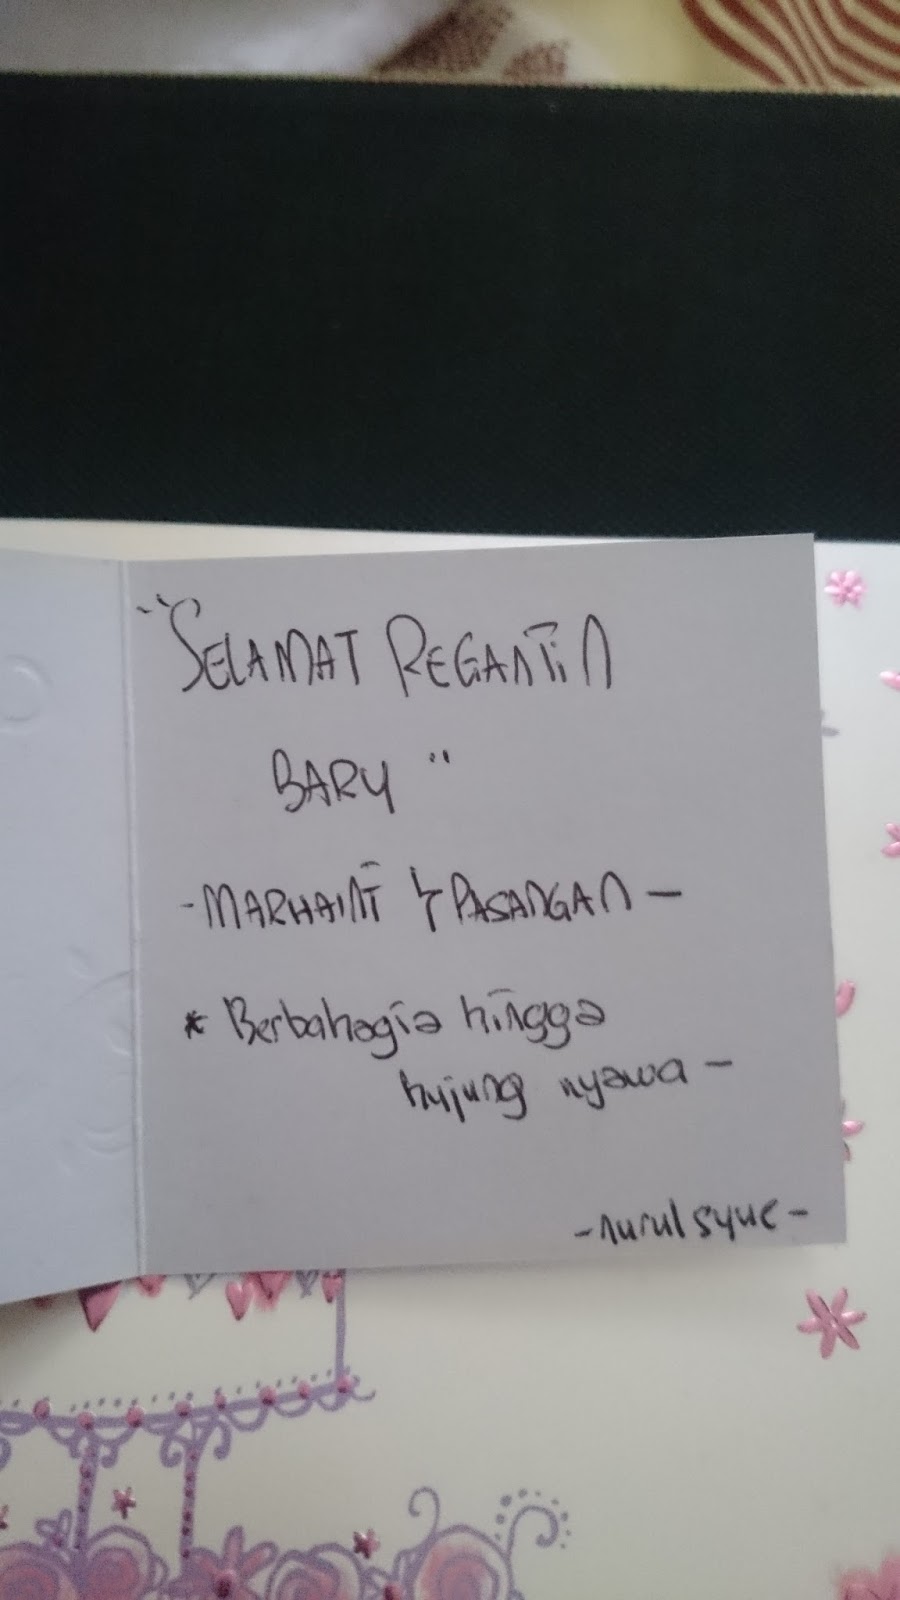 "SELAMAT PEGANTIN
BARU"
- MARHAINI & PASANGAN -
* Berbahagia hingga
hujung nyawa -
- nurul syue -